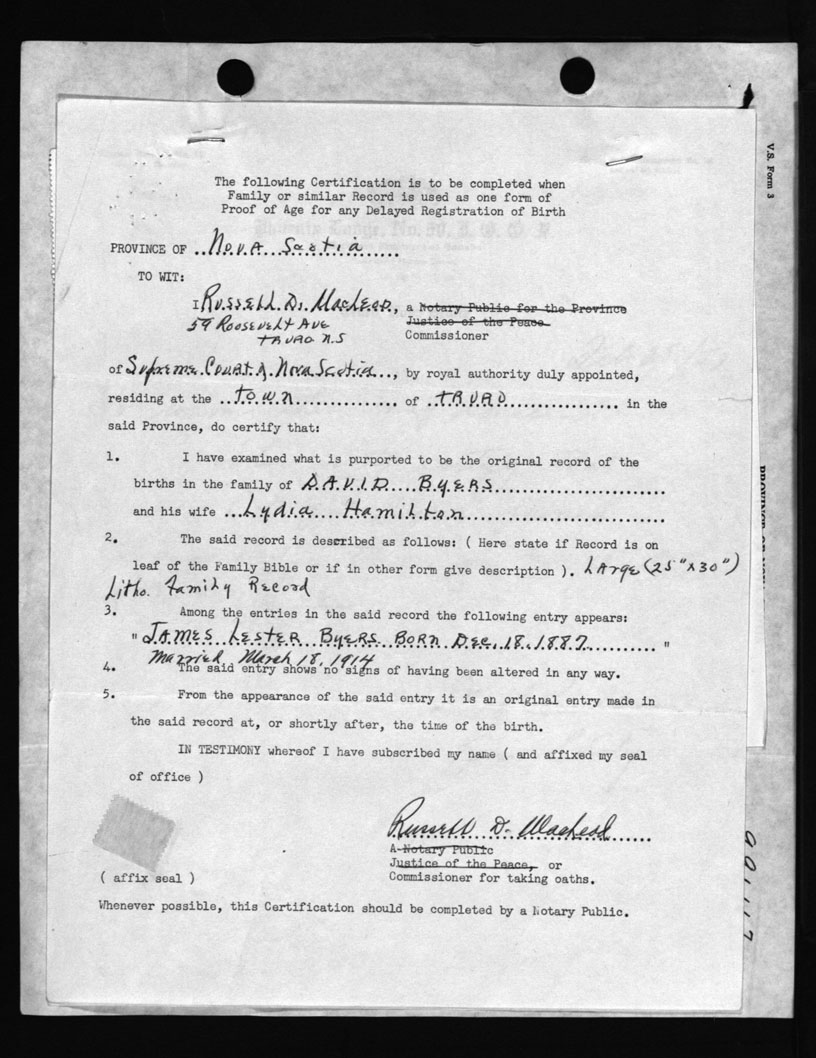 The following Certification is to be completed when
Family or similar Record is used as one form of
Proof of Age for any Delayed Registration of Birth
PROVINCE OF ..Nova Scotia..
TO WIT:
I Russell D. MacLeod, a Notary Public for the Province
59 Roosevelt Ave Justice of the Peace
Truro N.S Commissioner
of Supreme Court of Nova Scotia..., by royal authority duly appointed,
residing at the ..town............... of ..TRURO................ in the
said Province, do certify that:
1. I have examined what is purported to be the original record of the
births in the family of DAVID BYERS........................
and his wife ...Lydia....Hamilton............................
2. The said record is described as follows: ( Here state if Record is on
leaf of the Family Bible or if in other form give description ). Large (25" x 30")
Litho. Family Record
3. Among the entries in the said record the following entry appears:
" JAMES LESTER BYERS BORN Dec. 18. 1887.......... "
Married March 18, 1914
4. The said entry shows no signs of having been altered in any way.
5. From the appearance of the said entry it is an original entry made in
the said record at, or shortly after, the time of the birth.
IN TESTIMONY whereof I have subscribed my name ( and affixed my seal
of office )
Russell D. MacLeod
A Notary Public
Justice of the Peace, or
( affix seal ) Commissioner for taking oaths.
Whenever possible, this Certification should be completed by a Notary Public.
V.S. Form 3